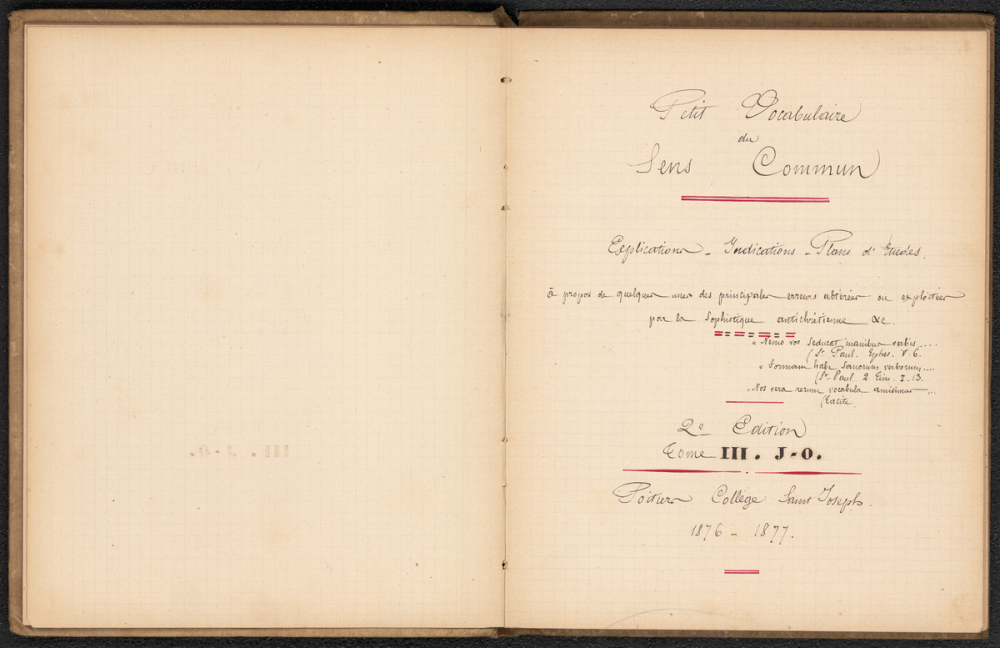 Petit Vocabulaire
du
Sens Commun
Explications - Indications - Plans d'Etudes.
à propos de quelques unes des principales erreurs altérées ou exploitées
par la Sophistique antichrétienne &c.
« Nemo vos seducat inanibus verbis....
(St. Paul. Ephes. V. 6.
« Formam habe sanorum verborum....
(St. Paul 2 Tim. I. 13.
« Nos vera rerum vocabula amisimus ...
(Tacite.
2e Edition
Tome III. J-O.
Poitiers Collège Saint Joseph.
1876 - 1877.
III. J-O.